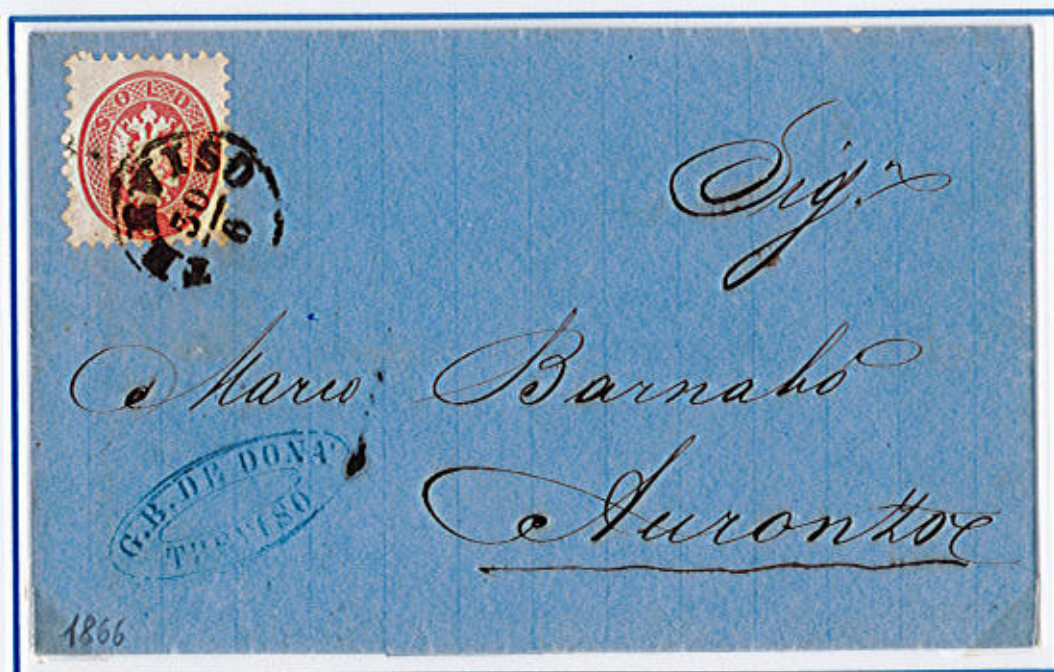 SOLDI
TREVISO
30
6
Sig.r
Marco Barnabò
Auronzo
G.B. DE DONA'
TREVISO
1866